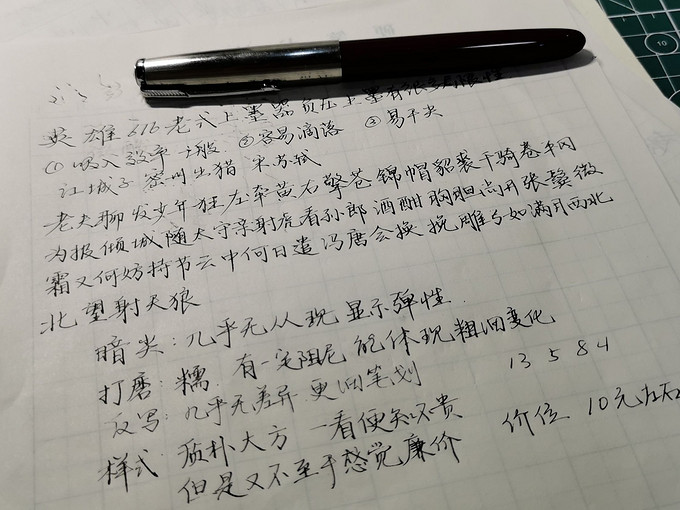 英雄616老式上墨器负压上墨有很多局限性
① 吸入效率一般 ② 容易滴落 ③ 易干尖
江城子 密州出猎 宋苏轼
老夫聊发少年狂左牵黄右擎苍锦帽貂裘千骑卷平冈
为报倾城随太守亲射虎看孙郎酒酣胸胆尚开张鬓微
霜又何妨持节云中何日遣冯唐会换挽雕弓如满月西北
北望射天狼
暗尖:几乎无从现显示弹性.
打磨:糯. 有一定阻尼 能体现粗细变化
反写:几乎无差异 更细笔划
13 5 8 4
样式:质朴大方 一看便知不贵
但是又不至于感觉廉价
价位 10元左右